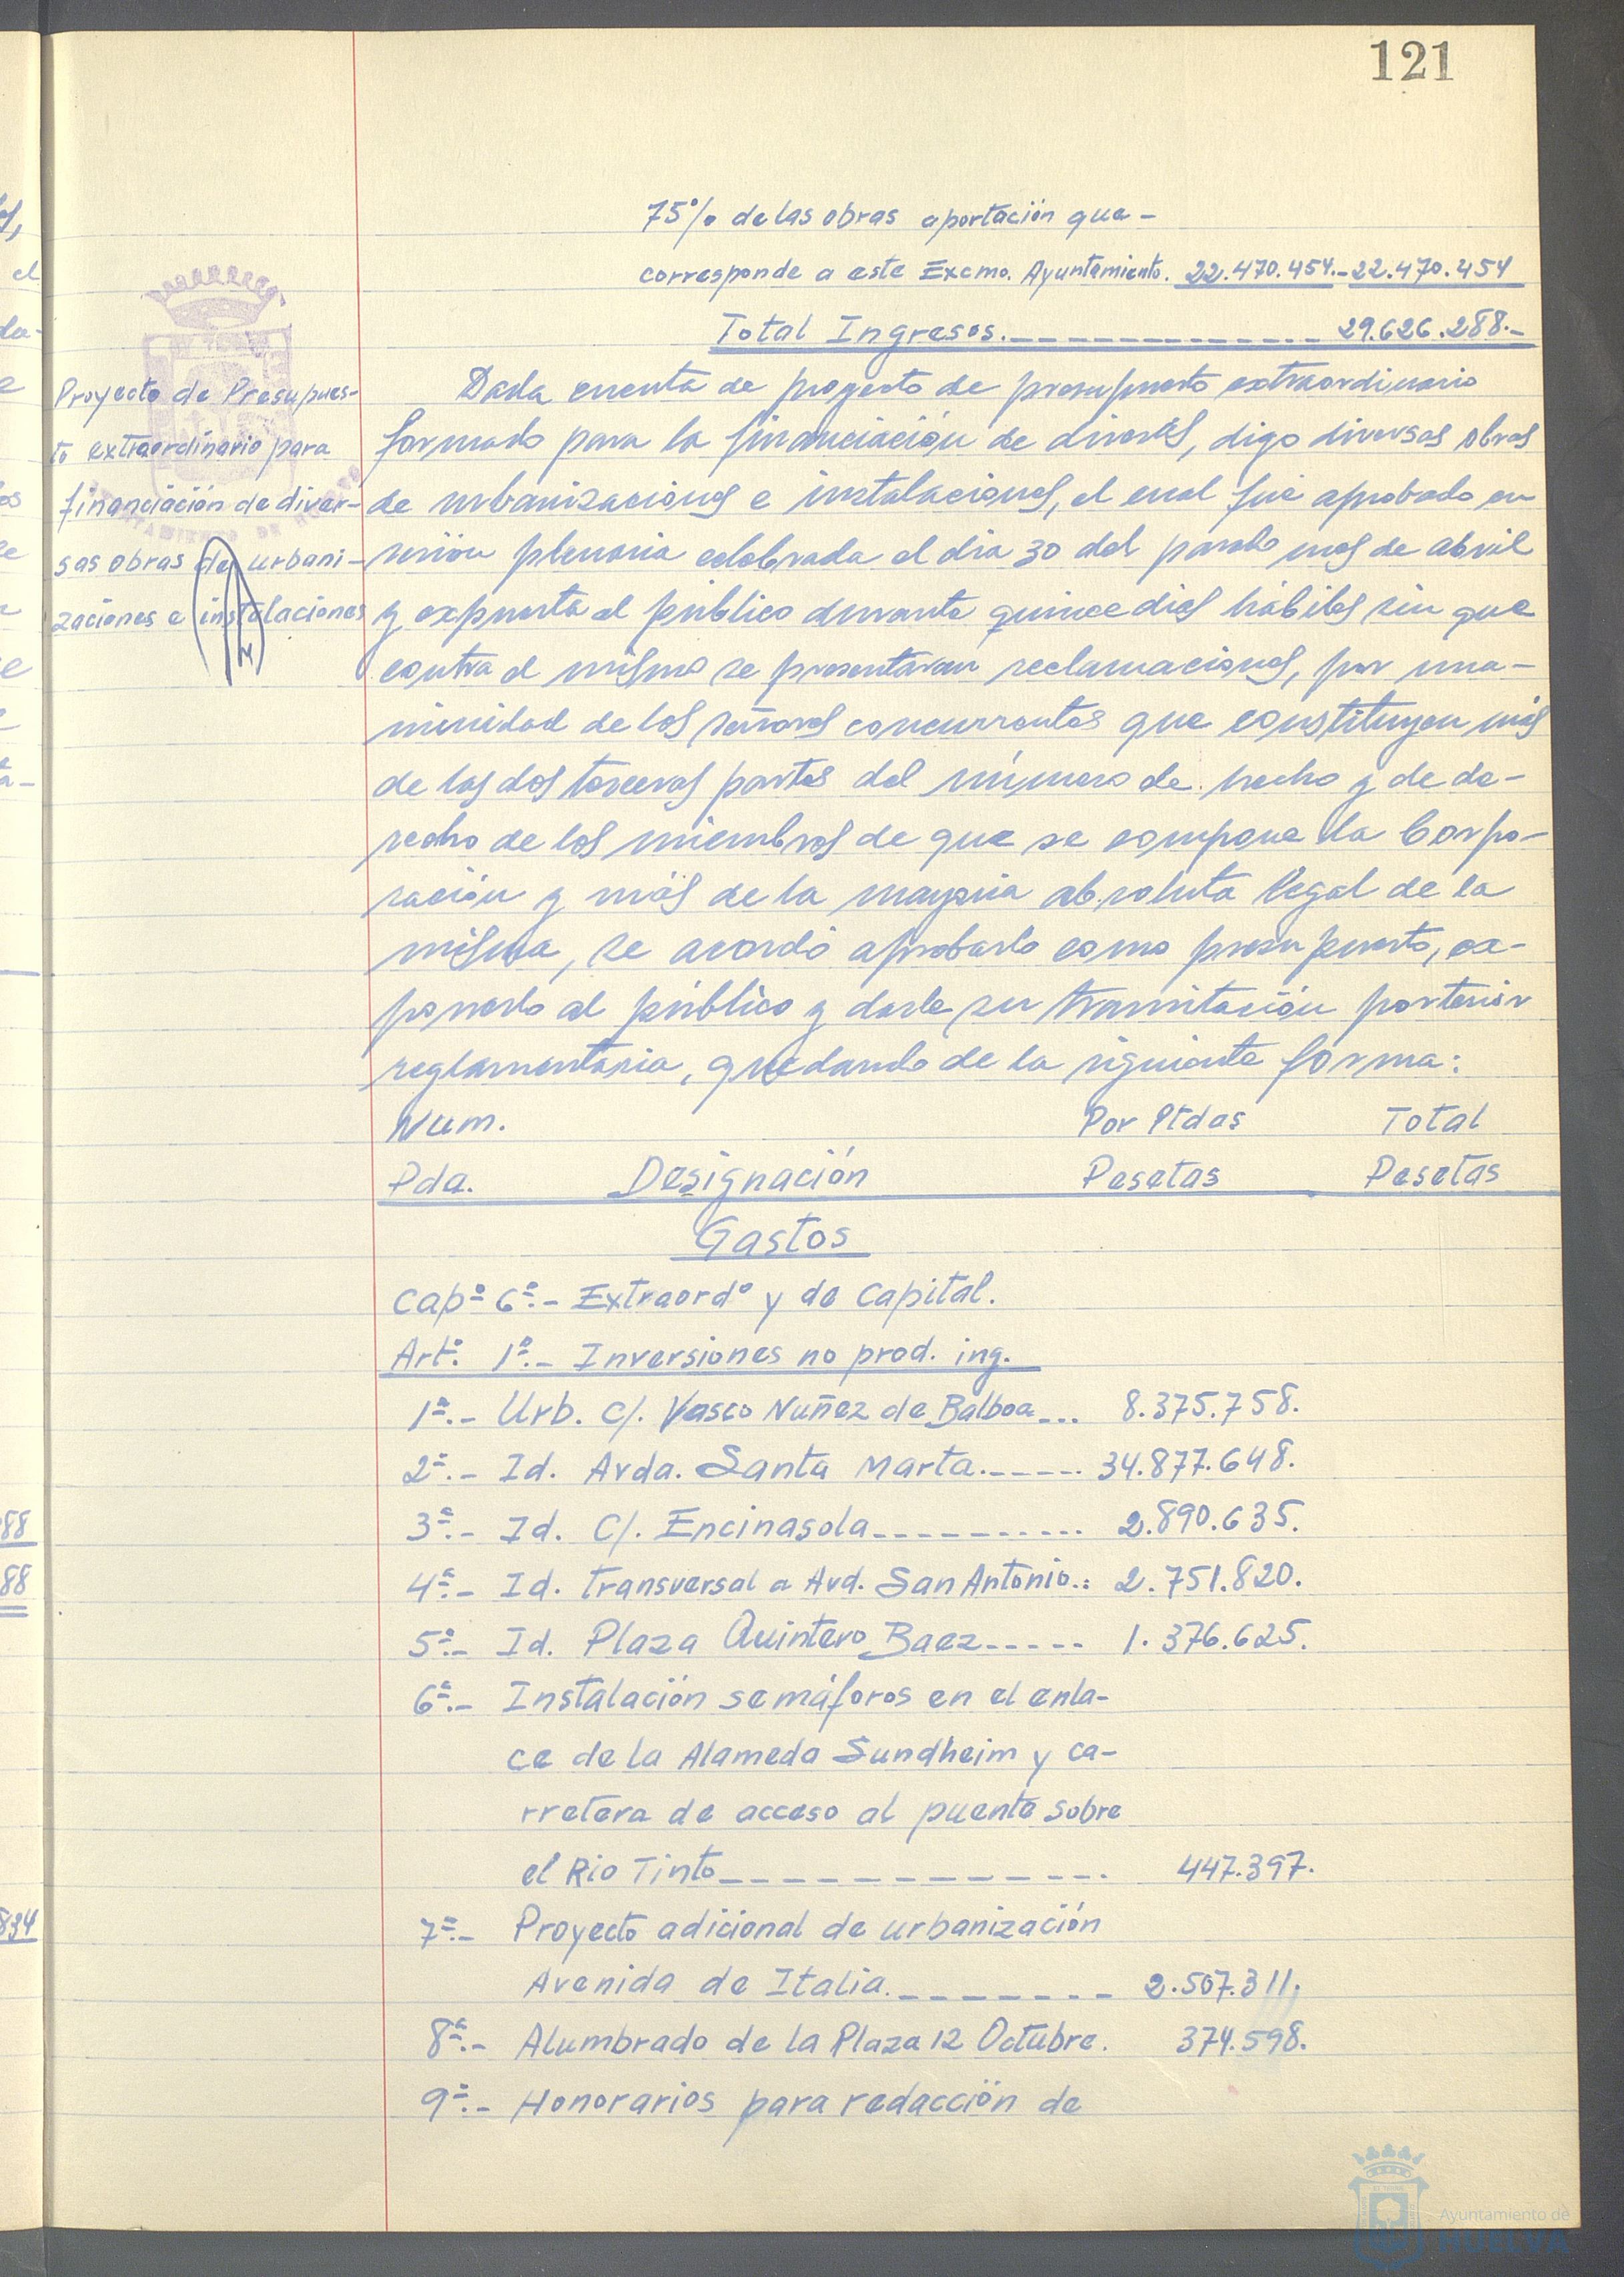 121
75% de las obras aportación que-
corresponde a este Excmo. Ayuntamiento. 22.470.454.- 22.470.454
Total Ingresos.------------- 29.626.288.-
Proyecto de Presupues-
to extraordinario para
financiación de diver-
sas obras de urbani-
zaciones e instalaciones
Dada cuenta de proyecto de presupuesto extraordinario
formado para la financiación de diverās, digo diversas obras
de urbanizaciones e instalaciones, el cual fué aprobado en
sesión plenaria celebrada el dia 30 del pasado mes de abril
y expuesto al público durante quince dias hábiles sin que
contra el mismo se presentaran reclamaciones, por una-
nimidad de los señores concurrentes que constituyen más
de las dos terceras partes del número de hecho y de de-
recho de los miembros de que se compone la Corpo-
ración y más de la mayoria absoluta legal de la
misma, se acordó aprobarlo como presupuesto, ex-
ponerlo al público y darle su tramitación posterior
reglamentaria, quedando de la siguiente forma:
Num. Por Ptdas Total
Pda. Designación Pesetas Pesetas
Gastos
Capº 6º.- Extraordº y de Capital.
Artº. 1º.- Inversiones no prod. ing.
1ª.- Urb. C/. Vasco Nuñez de Balboa... 8.375.758.
2ª.- Id. Avda. Santa Marta.------ 34.877.648.
3ª.- Id. C/. Encinasola----------- 2.890.635.
4ª.- Id. transversal a Avd. San Antonio.: 2.751.820.
5ª.- Id. Plaza Quintero Baez----- 1.376.625.
6ª.- Instalación semáforos en el enla-
ce de la Alameda Sundheim y ca-
rretera de acceso al puente sobre
el Rio Tinto------------. 447.397.
7ª.- Proyecto adicional de urbanización
Avenida de Italia.------- 2.507.311.
8ª.- Alumbrado de la Plaza 12 Octubre. 374.598.
9ª.- Honorarios para redacción de
88
88
834
Ayuntamiento de
HUELVA